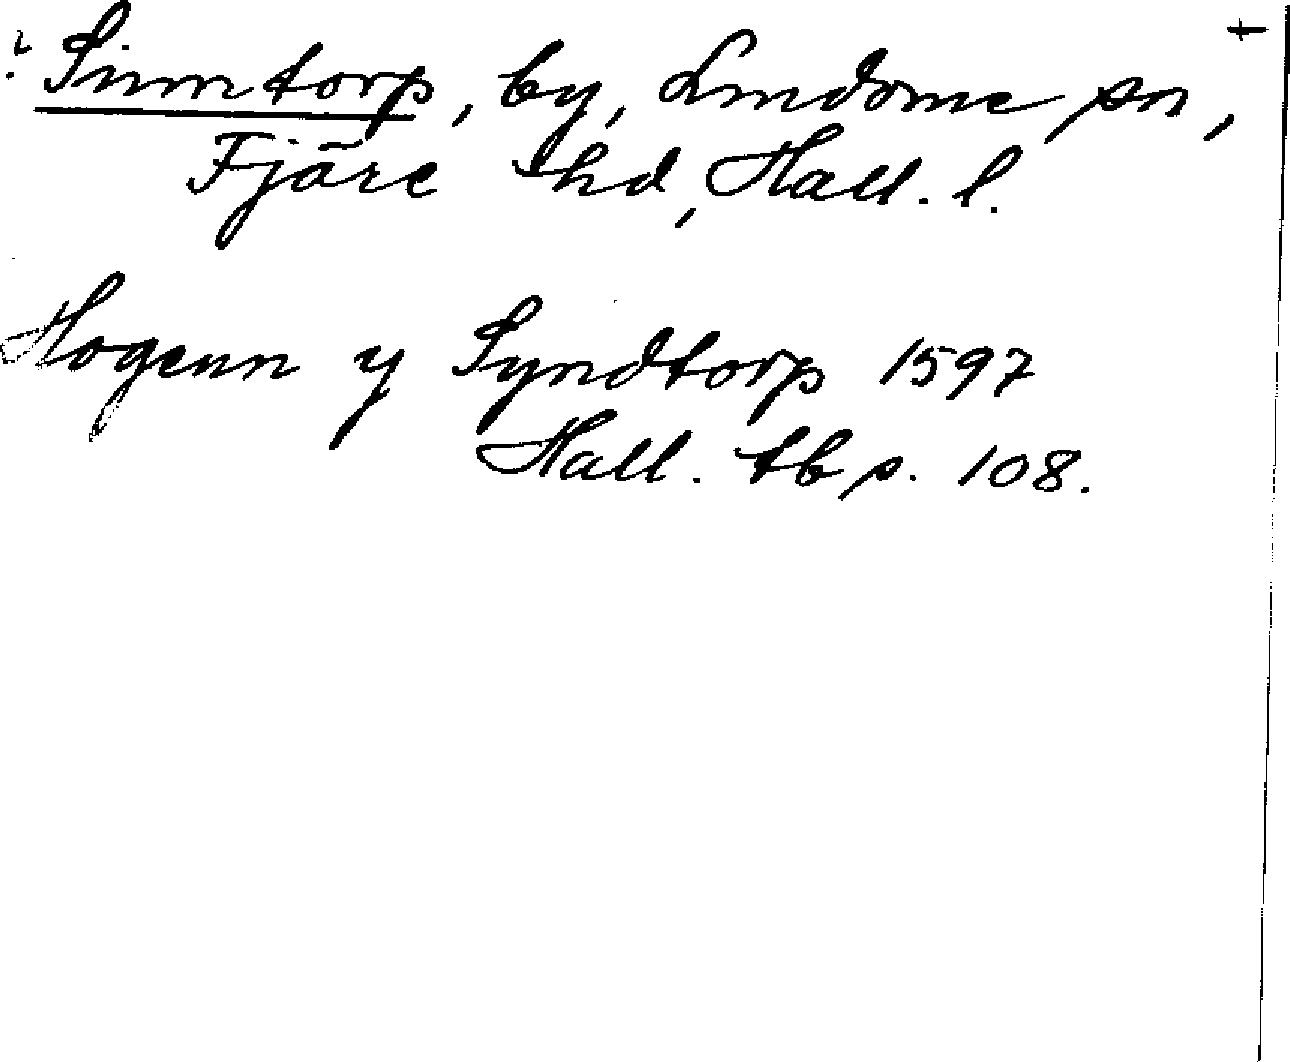 ? Sinntorp, by, Lindome sn, †
Fjäre hd, Hall. l.
Hogenn y Syndtorp 1597
Hall. tb s. 108.